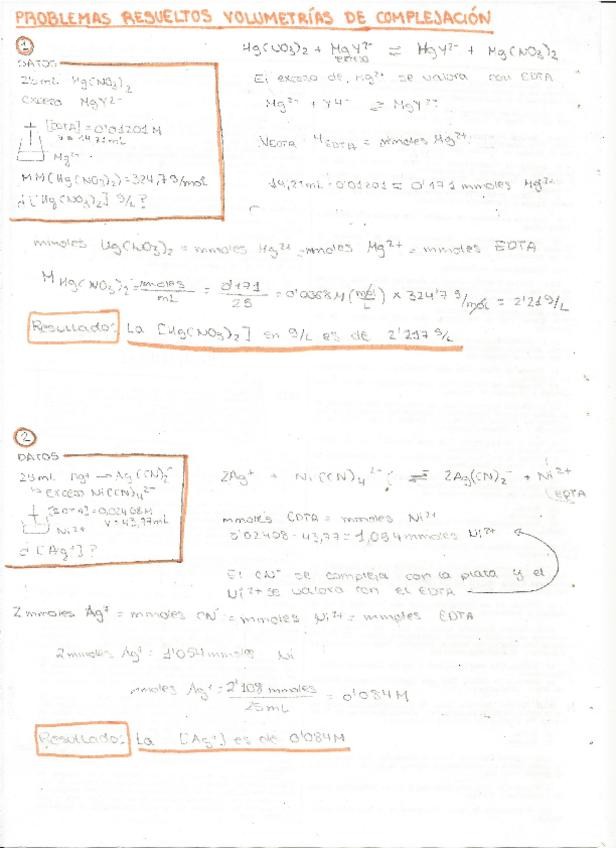 PROBLEMAS RESUELTOS VOLUMETRÍAS DE COMPLEJACIÓN
1
DATOS
25mL Hg(NO3)2
exceso MgY2-
[EDTA] = 0'01201 M
Mg2+
MM(Hg(NO3)2) = 324,7 g/mol
¿[Hg(NO3)2] g/L?
Hg(NO3)2 + MgY2- ⇌ HgY2- + Mg(NO3)2
exceso
El exceso de Mg2+ se valora con EDTA
Mg2+ + Y4- ⇌ MgY2-
VEDTA · MEDTA = mmoles Mg2+
14,21mL · 0'01201 = 0'171 mmoles Mg2+
mmoles Hg(NO3)2 = mmoles Hg2+ = mmoles Mg2+ = mmoles EDTA
M Hg(NO3)2 = mmoles/mL = 0'171/25 = 0'0068 M (mol/L) × 324'7 g/mol = 2'21 g/L
Resultado: La [Hg(NO3)2] en g/L es de 2'217 g/L
2
DATOS
25mL Ag+ → Ag(CN)2-
↳ exceso Ni(CN)4 2-
[EDTA] = 0,02408M
V = 43,77mL
Ni2+
¿[Ag+]?
2Ag+ + Ni(CN)4 2- ⇌ 2Ag(CN)2- + Ni2+
EDTA
mmoles EDTA = mmoles Ni2+
0'02408 · 43,77 = 1,054 mmoles Ni2+
El CN- se compleja con la plata y el
Ni2+ se valora con el EDTA
2 mmoles Ag+ = mmoles CN- = mmoles Ni2+ = mmoles EDTA
2 mmoles Ag+ = 1'054 mmoles Ni
mmoles Ag+ = 2'108 mmoles/25mL = 0'084 M
Resultado: La [Ag+] es de 0'084 M